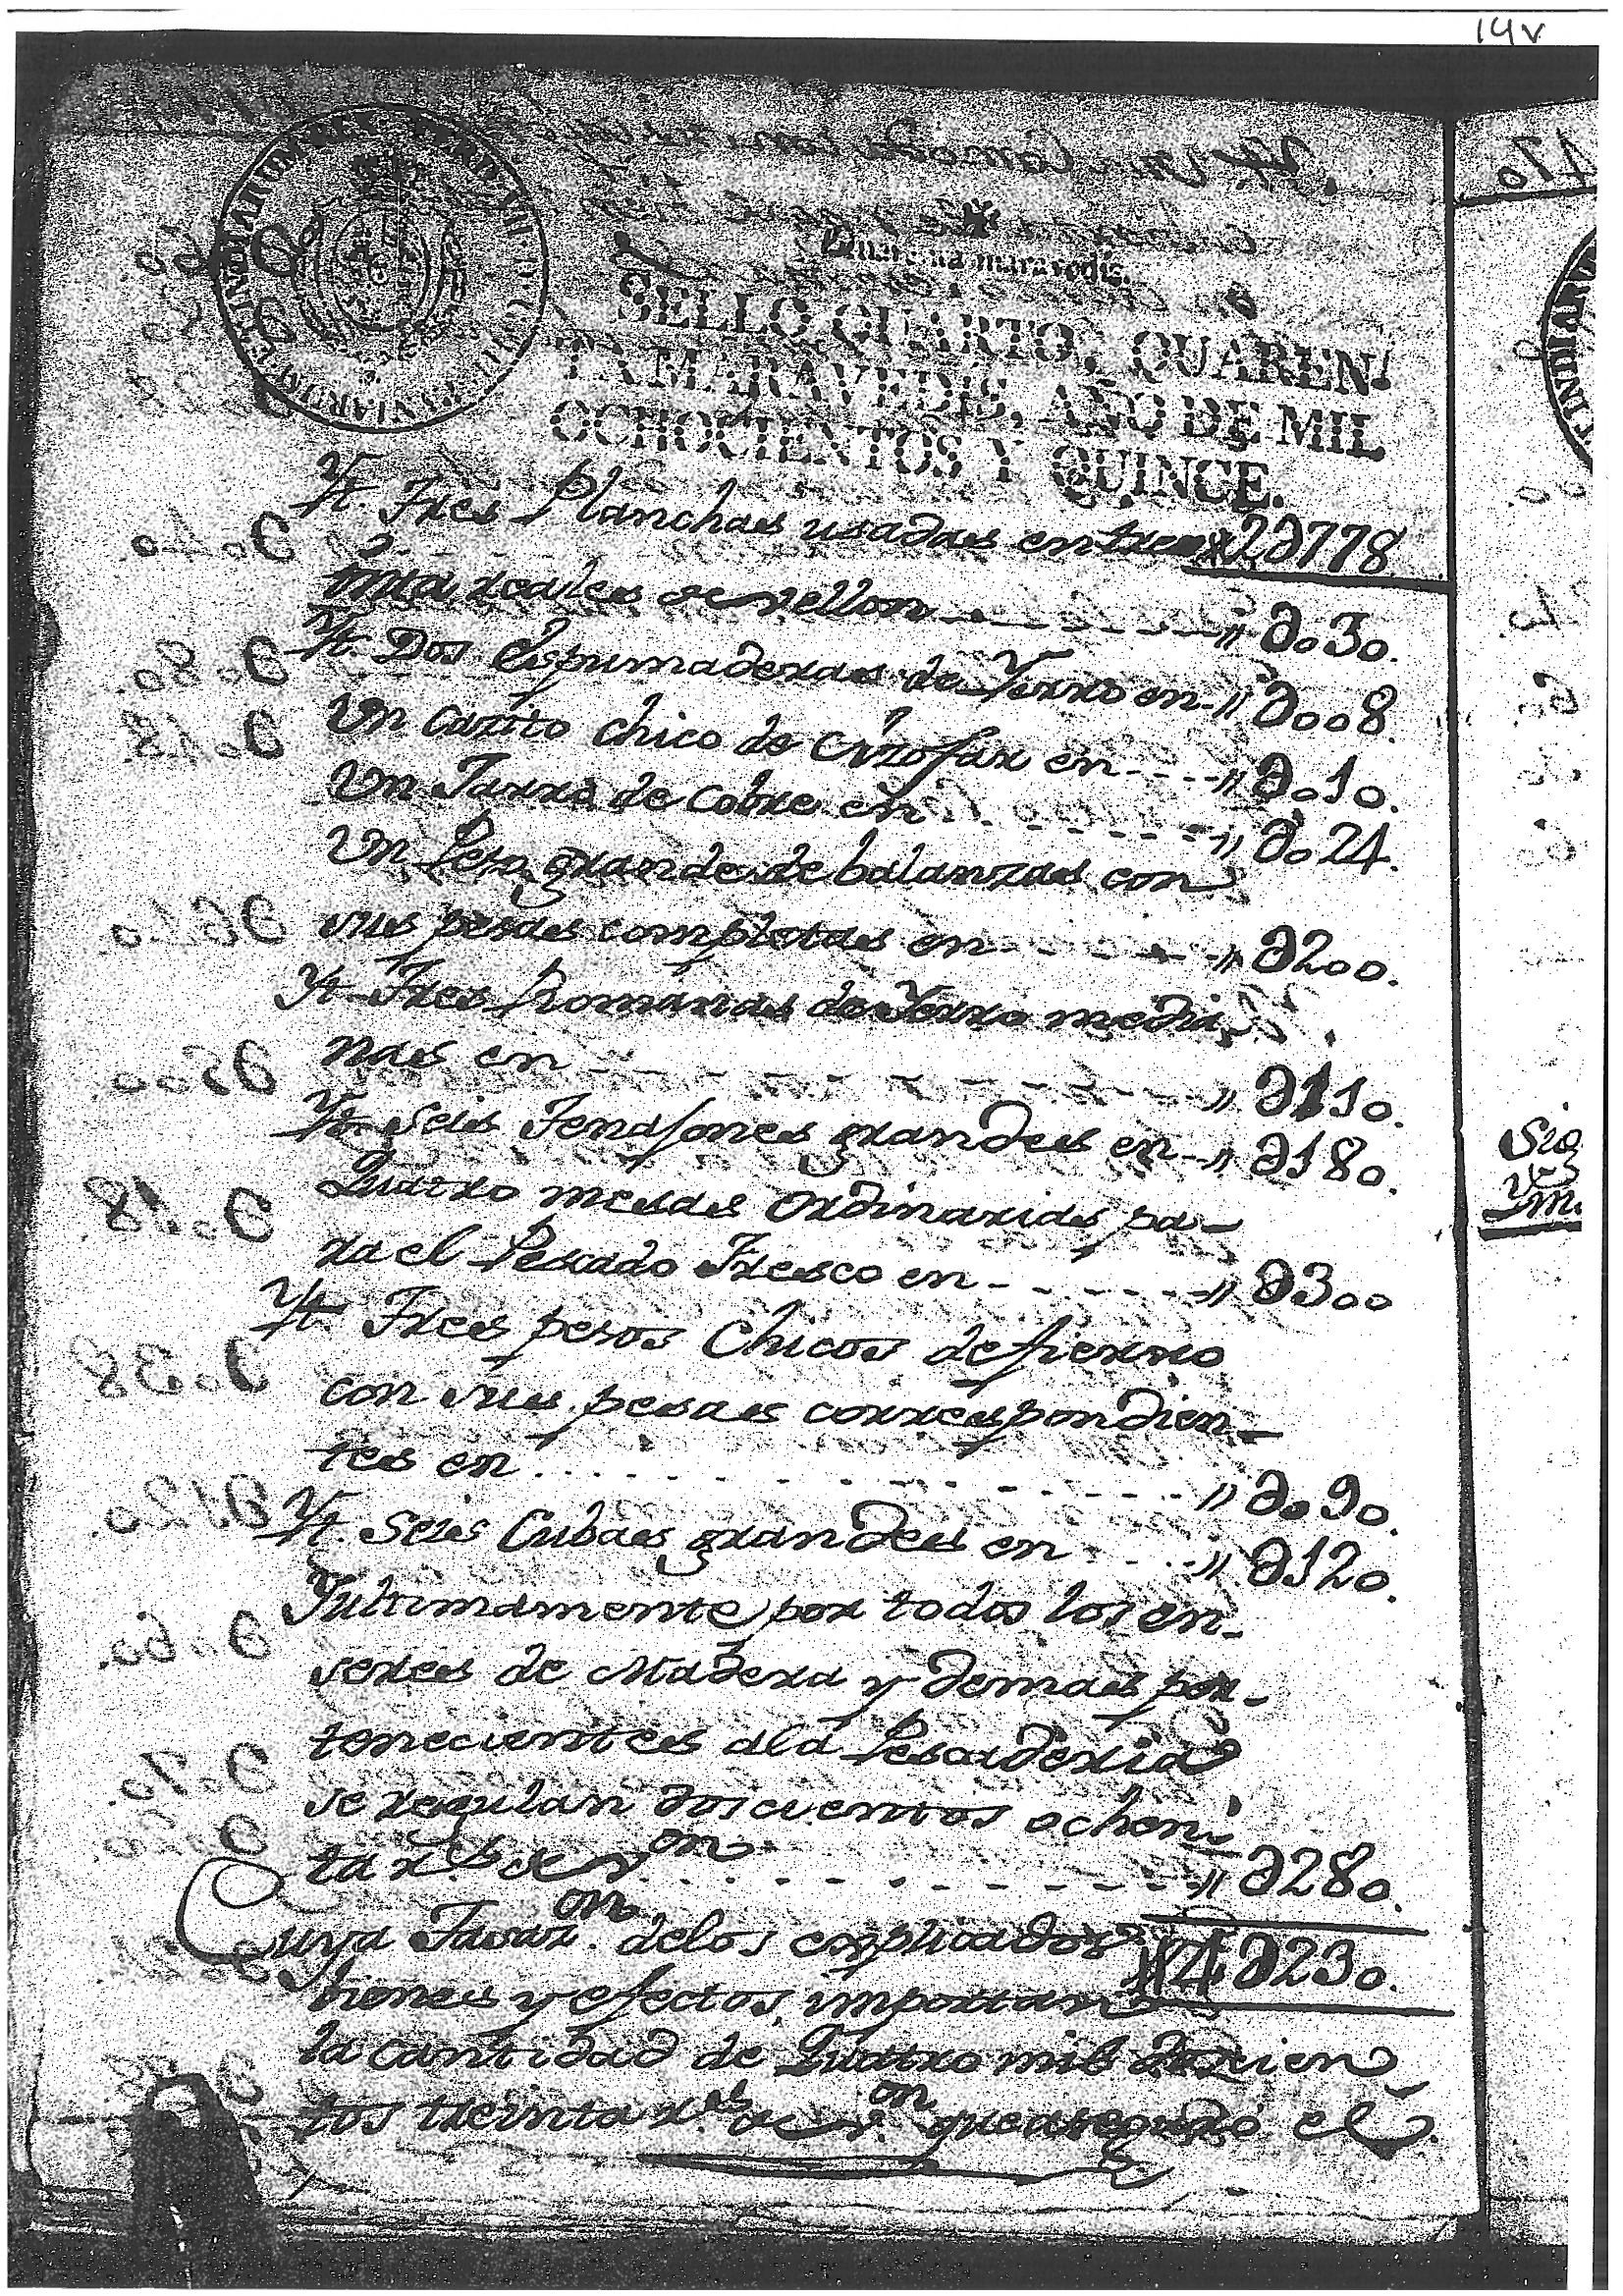 14v
Quarenta maravedis.
SELLO QUARTO, QUAREN-
TA MARAVEDIS, AÑO DE MIL
OCHOCIENTOS Y QUINCE.
2∂778
Yt. Tres Planchas usadas en trein
ta reales de vellon " ∂030.
Yt. Dos Espumaderas de Yerro en " ∂008.
Un cazito chico de en " ∂010.
Un Jarro de cobre en " ∂024.
Un Peso grande de balanzas con
sus pesas completas en " ∂200.
Yt. Tres Romanas de Yerro media
nas en " ∂110.
Yt. Seis grandes en " ∂180.
Quatro mesas ordinarias pa-
ra el Pescado Fresco en " ∂300
Yt. Tres pesos Chicos de fierro
con sus pesas correspondien-
tes en " ∂090.
Yt. Seis Cubas grandes en " ∂120.
Y ultimamente por todos los en-
seres de Madera y demas per-
tenecientes ala Pescaderia
se regulan doscientos ochen-
ta r.s de v.on " ∂280.
Cuya Tasaz.on delos explicados 4∂230.
bienes y efectos, importan
la cantidad de Quatro mil docien
tos treinta r.s de v.on que aseguró el
Sig
Ym